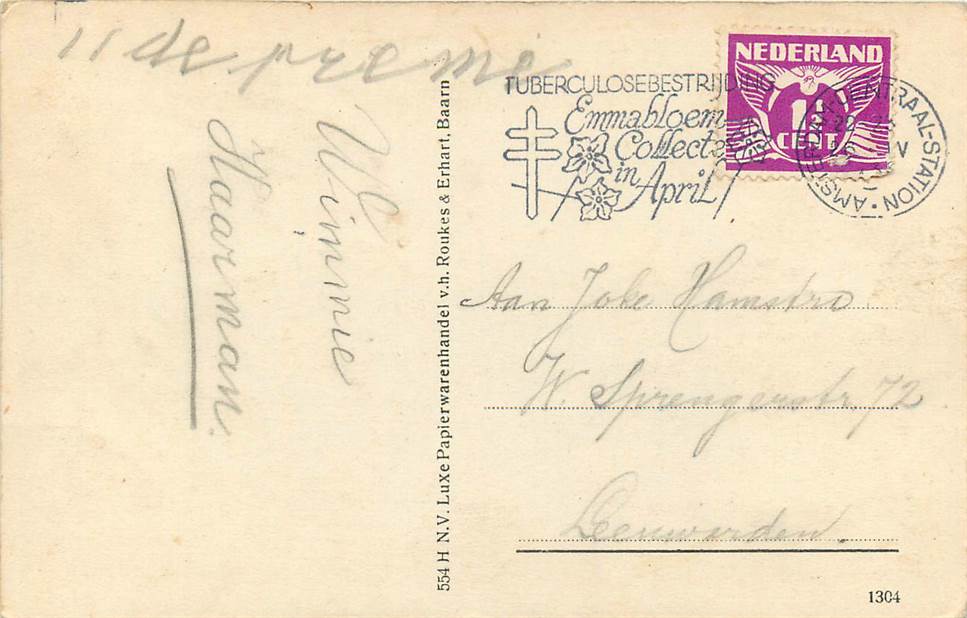 11 de premie
Winnie
Haarman.
554 H N.V. Luxe Papierwarenhandel v.h. Roukes & Erhart, Baarn
TUBERCULOSEBESTRIJDING
Emmabloem
Collecte
in
April
NEDERLAND
1½
CENT
AMSTERDAM-CENTRAAL-STATION
IV
Aan Joke Hamstra
W. Sprengerstr. 72
Leeuwarden.
1304